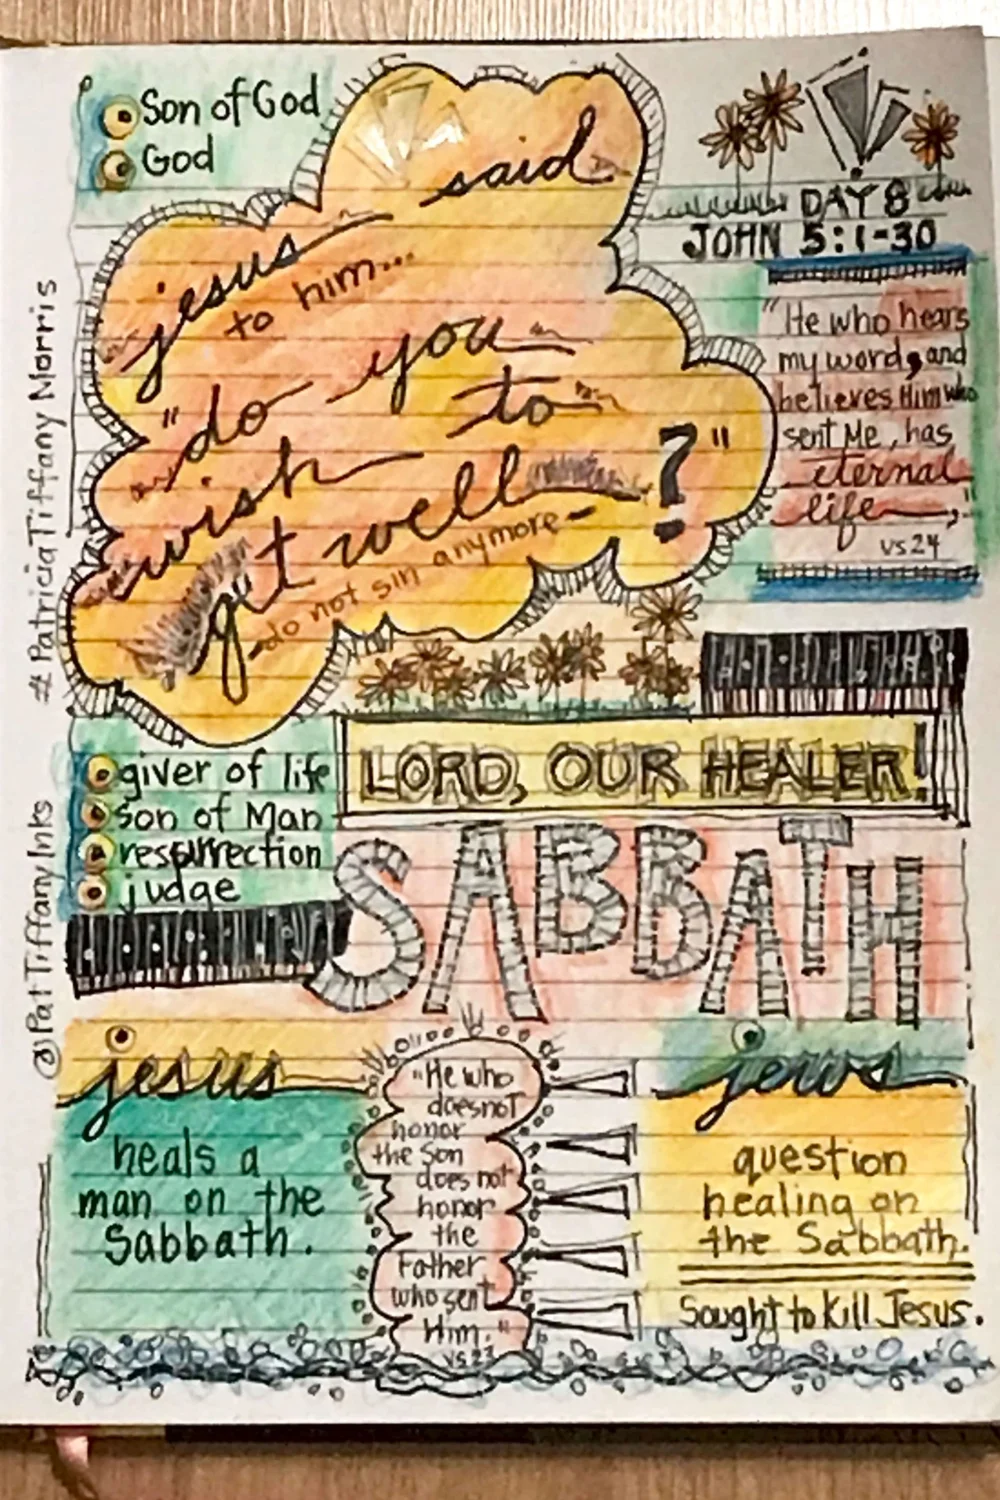 Son of God
God
DAY 8
JOHN 5:1-30
jesus said
to him...
"do you
wish to
get well ?"
-do not sin anymore-
"He who hears
my word, and
believes Him who
sent Me, has
eternal
life,"
vs 24
# Patricia Tiffany Morris
@PatTiffanyInks
LORD, OUR HEALER!
giver of life
son of Man
resurrection
judge
SABBATH
jesus
heals a
man on the
Sabbath.
"He who
does not
honor
the Son
does not
honor
the
Father
who sent
Him."
vs 23
jews
question
healing on
the Sabbath.
Sought to Kill Jesus.